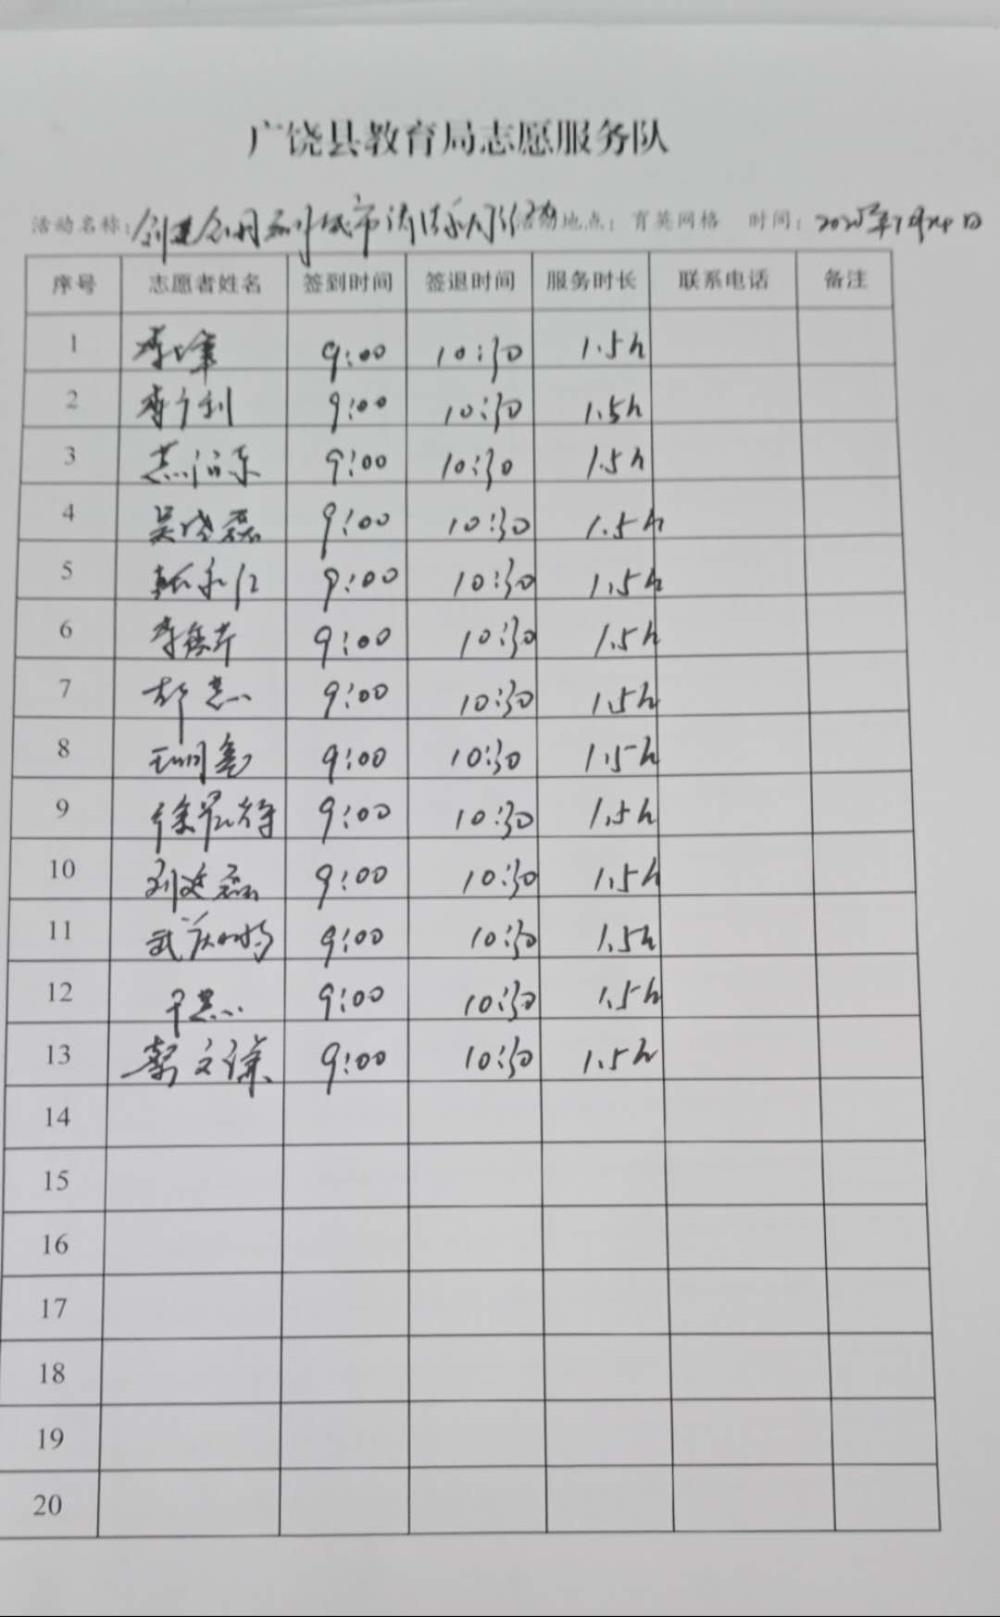 广饶县教育局志愿服务队
活动名称：创建全国文明城市清洁家园活动 活动地点：育英网格 时间：2025年7月24日
序号 志愿者姓名 签到时间 签退时间 服务时长 联系电话 备注
1 9:00 10:30 1.5h
2 9:00 10:30 1.5h
3 9:00 10:30 1.5h
4 吴晓磊 9:00 10:30 1.5h
5 9:00 10:30 1.5h
6 9:00 10:30 1.5h
7 9:00 10:30 1.5h
8 9:00 10:30 1.5h
9 9:00 10:30 1.5h
10 刘延磊 9:00 10:30 1.5h
11 9:00 10:30 1.5h
12 9:00 10:30 1.5h
13 9:00 10:30 1.5h
14
15
16
17
18
19
20